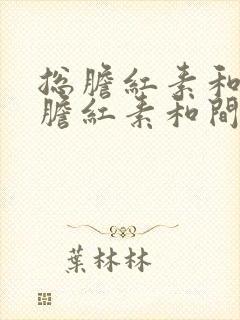 总膽紅素和
膽紅素和間
葉林林